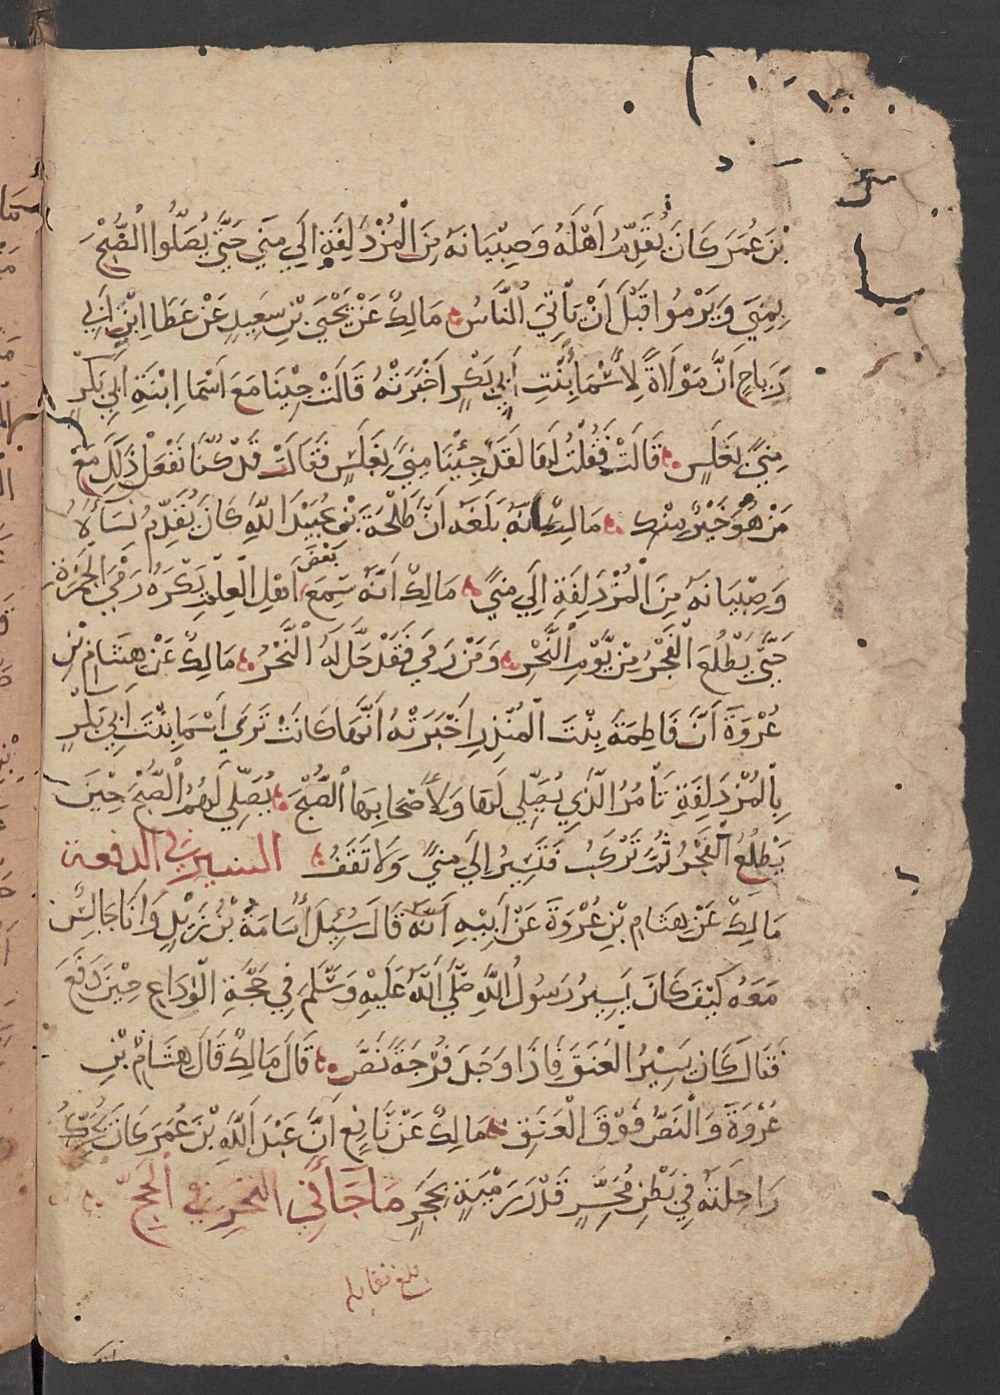 بْنَ عُمَرَ كَانَ يُقَدِّمُ اَهْلَهُ وَصِبْيَانَهُ مِنَ الْمُزْدَلِفَةِ اِلَي مِنَي حَتَّي يُصَلُّوا الصُّبْحَ
بِمِنَي وَيَرْمُوا قَبْلَ اَنْ يَأْتِيَ النَّاسُ مَالِكٌ عَنْ يَحْيَي بْنِ سَعِيدٍ عَنْ عَطَا اِبْنِ اَبِي
رَبَاحٍ اَنَّ مَوْلَاةً لِاَسْمَا بِنْتِ اَبِي بَكْرٍ اَخْبَرَتْهُ قَالَتْ جِيْنَا مَعَ اَسْمَا اِبْنَةِ اَبِي بَكْرٍ
مِنًي بِغَلَسٍ قَالَتْ فَقُلْتُ لَهَا لَقَدْ جِئْنَا مِنًي بِغَلَسٍ فَقَالَتْ قَدْ كُنَّا نَفْعَلُ ذَلِكَ مَعَ
مَنْ هُوَ خَيْرٌ مِنْكِ مَالِكٌ اَنَّهُ بَلَغَهُ اَنَّ طَلْحَةَ بْنَ عُبَيْدِ اللَّهِ كَانَ يُقَدِّمُ نِسَاءَهُ
وَصِبْيَانَهُ مِنَ الْمُزْدَلِفَةِ اِلَي مِنًي مَالِكٌ اَنَّهُ سَمِعَ بَعْضَ اَهْلِ الْعِلْمِ يَكْرَهُ رَمْيَ الْجَمْرَةِ
حَتَّي يَطْلُعَ الْفَجْرُ مِنْ يَّوْمِ النَّحْرِ وَمَنْ رَمَي فَقَدْ حَلَّ لَهُ النَّحْرُ مَالِكٌ عَنْ هِشَامِ بْنِ
عُرْوَةَ اَنَّ فَاطِمَةَ بِنْتَ الْمُنْذِرِ اَخْبَرَتْهُ اَنَّهَا كَانَتْ تَرَي اَسْمَا بِنْتَ اَبِي بَكْرٍ
بِالْمُزْدَلِفَةِ تَأْمُرُ الَّذِي يُصَلِّي لَهَا وَلِاَصْحَابِهَا الصُّبْحَ يُصَلِّي لَهُمُ الصُّبْحَ حِيْنَ
يَطْلُعُ الْفَجْرُ ثُمَّ تَرْكَبُ فَتَسِيْرُ اِلَي مِنًي وَلَا تَقَفُ السير في الدفعة
مَالِكٌ عَنْ هِشَامِ بْنِ عُرْوَةَ عَنْ اَبِيْهِ اَنَّهُ قَالَ سُئِلَ اُسَامَةُ بْنُ زَيْدٍ وَاَنَا جَالِسٌ
مَعَهُ كَيْفَ كَانَ يَسِيرُ رَسُولُ اللَّهِ صَلَّي اللَّهُ عَلَيْهِ وَسَلَّمَ فِي حَجَّةِ الْوَدَاعِ حِيْنَ دَفَعَ
فَقَالَ كَانَ يَسِيْرُ الْعَنَقَ فَاِذَا وَجَدَ فُرْجَةً نَصَّ قَالَ مَالِكٌ قَالَ هِشَامُ بْنُ
عُرْوَةَ وَالنَّصُّ فَوْقَ الْعَنَقِ مَالِكٌ عَنْ نَّافِعٍ اَنَّ عَبْدَ اللَّهِ بْنَ عُمَرَ كَانَ يُحَرِّكُ
رَاحِلَتَهُ فِي بَطْنِ مُحَسِّرٍ قَدْرَ رَمْيَةٍ بِحَجَرٍ مَا جَا فِي النَّحْرِ فِي الْحَجِّ
بلغ مقابلة